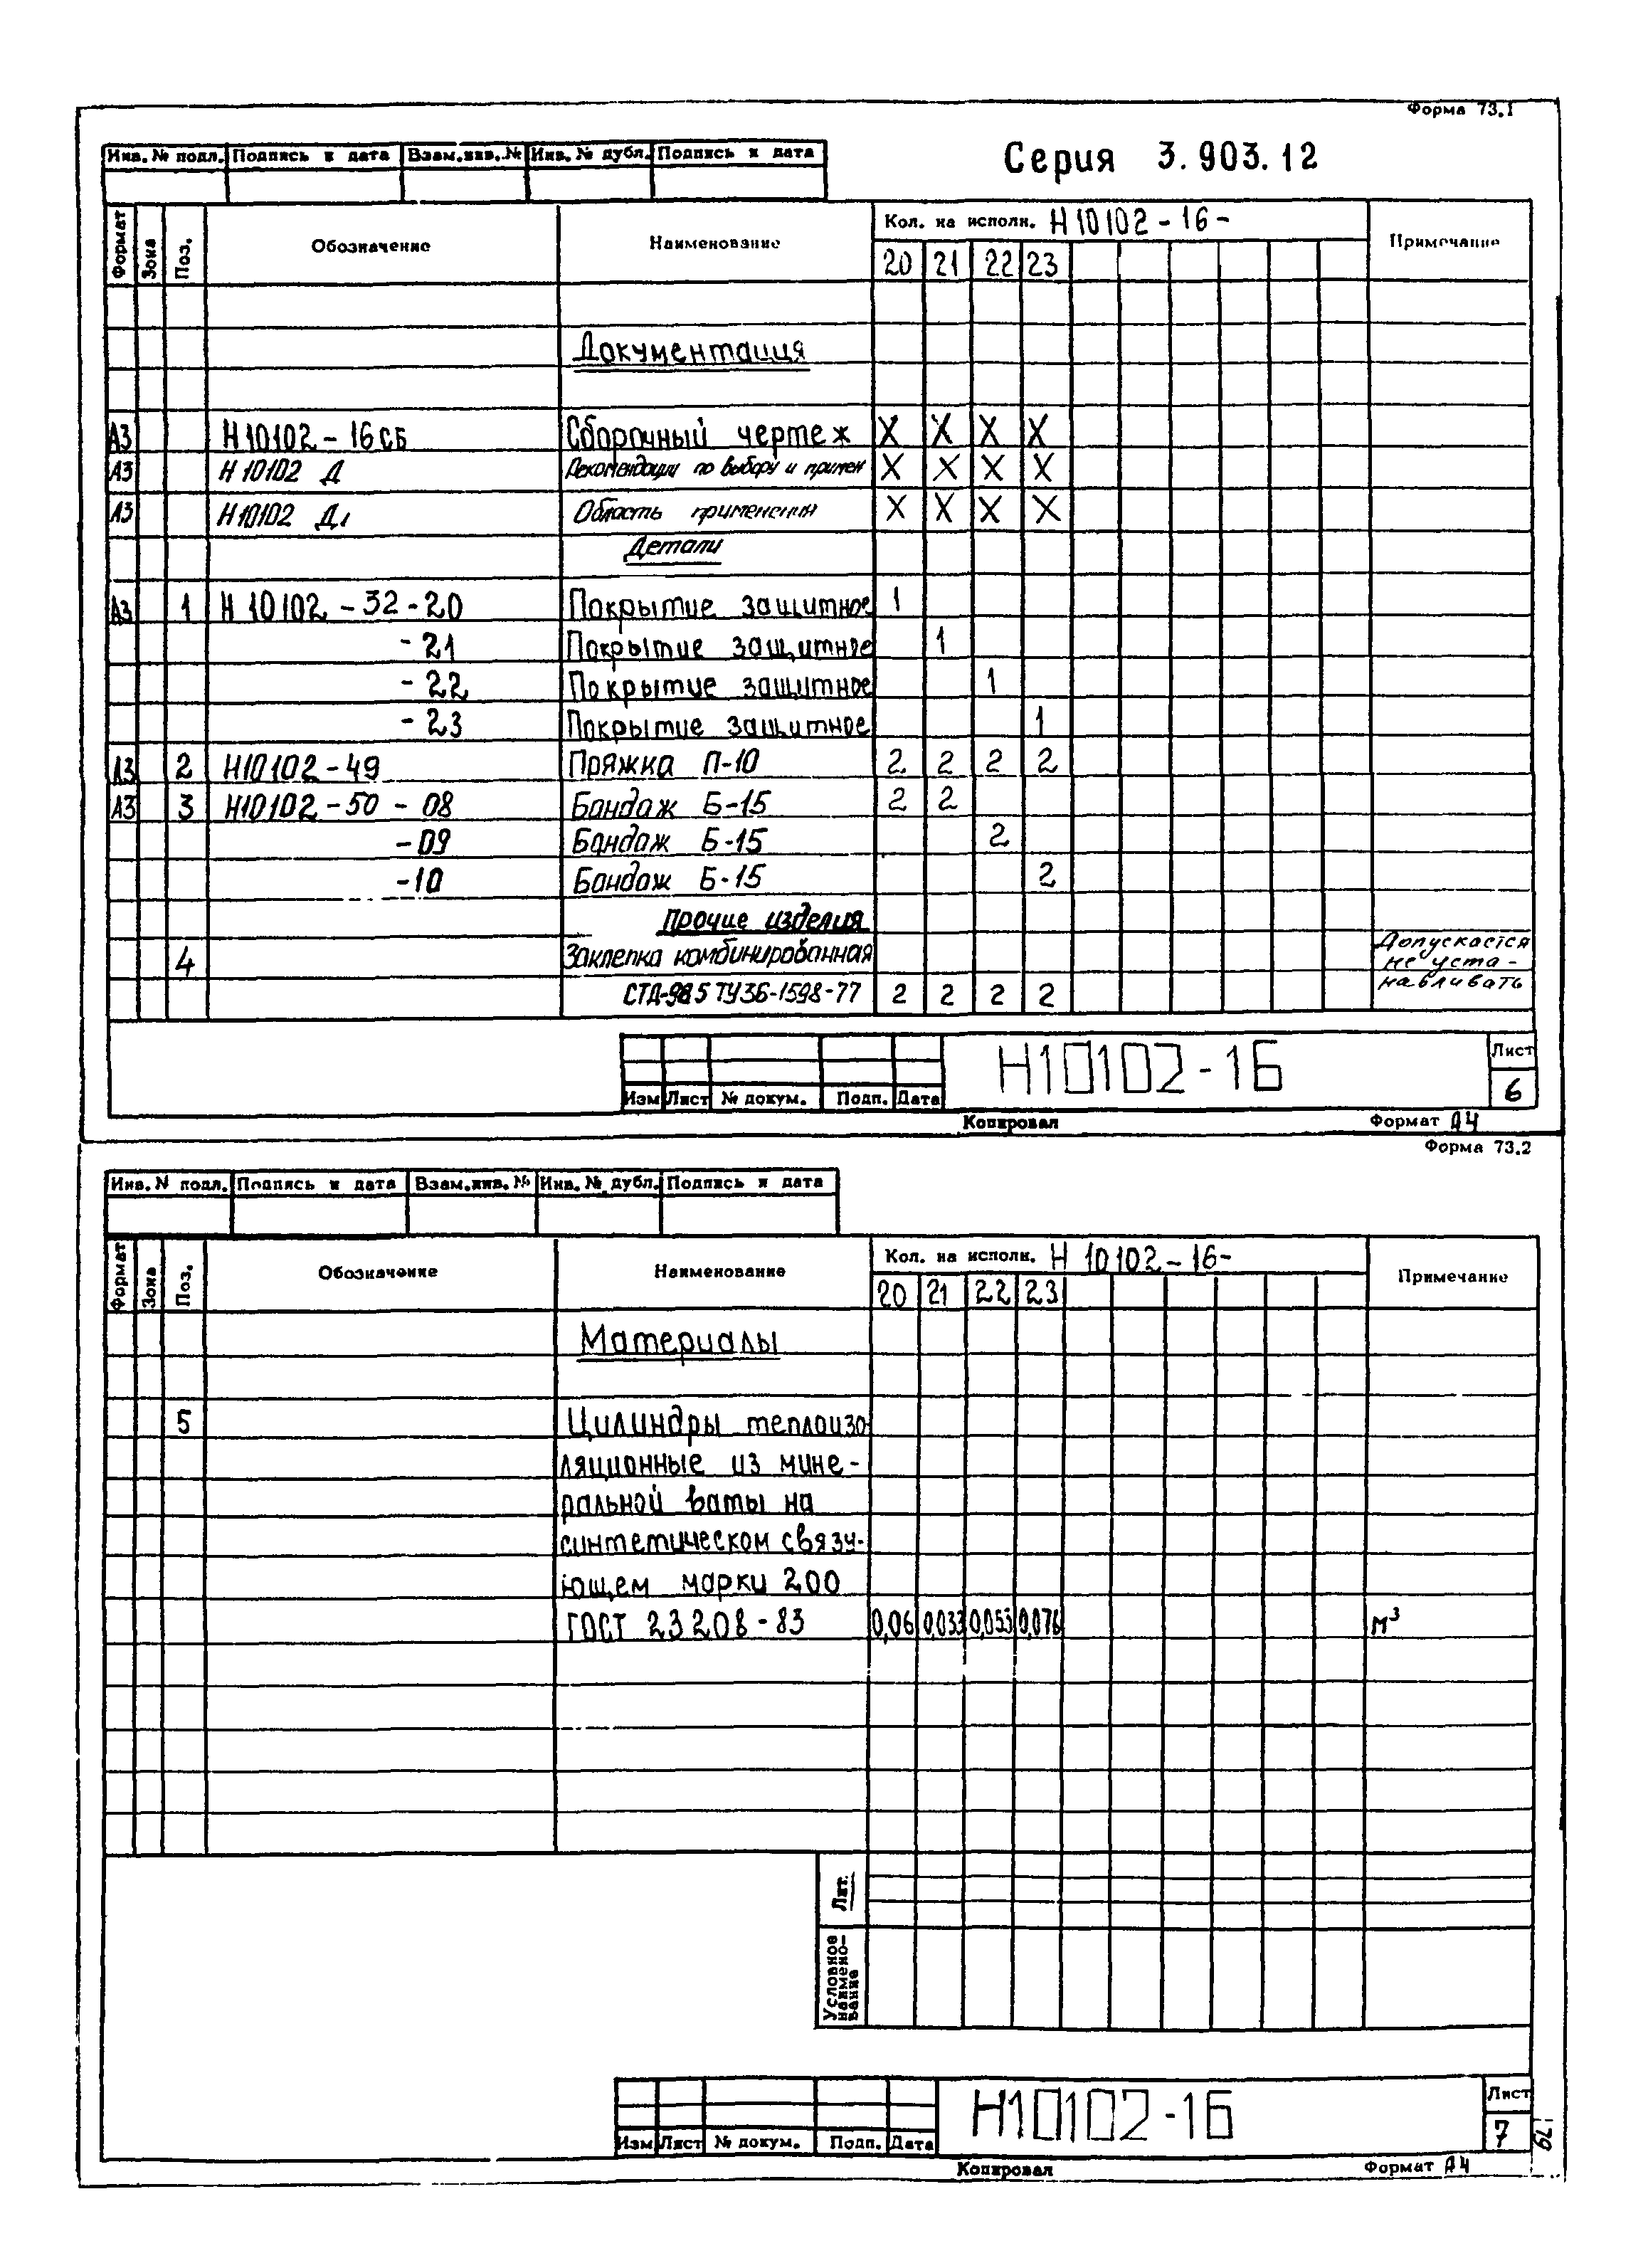 Форма 73.1
Инв. № подл. Подпись и дата Взам.инв.№ Инв. № дубл. Подпись и дата
Серия 3.903.12
Формат Зона Поз. Обозначение Наименование Кол. на исполн. Н10102-16- Примечание
20 21 22 23
Документация
А3 Н10102-16СБ Сборочный чертеж X X X X
А3 Н10102 Д Рекомендации по выбору и примен X X X X
А3 Н10102 Д1 Область применения X X X X
Детали
А3 1 Н10102-32-20 Покрытие защитное 1
-21 Покрытие защитное 1
-22 Покрытие защитное 1
-23 Покрытие защитное 1
А3 2 Н10102-49 Пряжка П-10 2 2 2 2
А3 3 Н10102-50-08 Бандаж Б-15 2 2
-09 Бандаж Б-15 2
-10 Бандаж Б-15 2
Прочие изделия
4 Заклепка комбинированная Допускается
не уста-
СТД-985 ТУ36-1598-77 2 2 2 2 навливать
Н10102-16
Лист
6
Изм Лист № докум. Подп. Дата
Копировал Формат А4
Форма 73.2
Инв. № подл. Подпись и дата Взам.инв. № Инв. № дубл. Подпись и дата
Формат Зона Поз. Обозначение Наименование Кол. на исполн. Н10102-16- Примечание
20 21 22 23
Материалы
5 Цилиндры теплоизо
ляционные из мине-
ральной ваты на
синтетическом связу-
ющем марки 200
ГОСТ 23208-83 0,06 0,033 0,053 0,076 м³
Лит.
Условное
наимено-
вание
Н10102-16
Лист
7
Изм Лист № докум. Подп. Дата
Копировал Формат А4